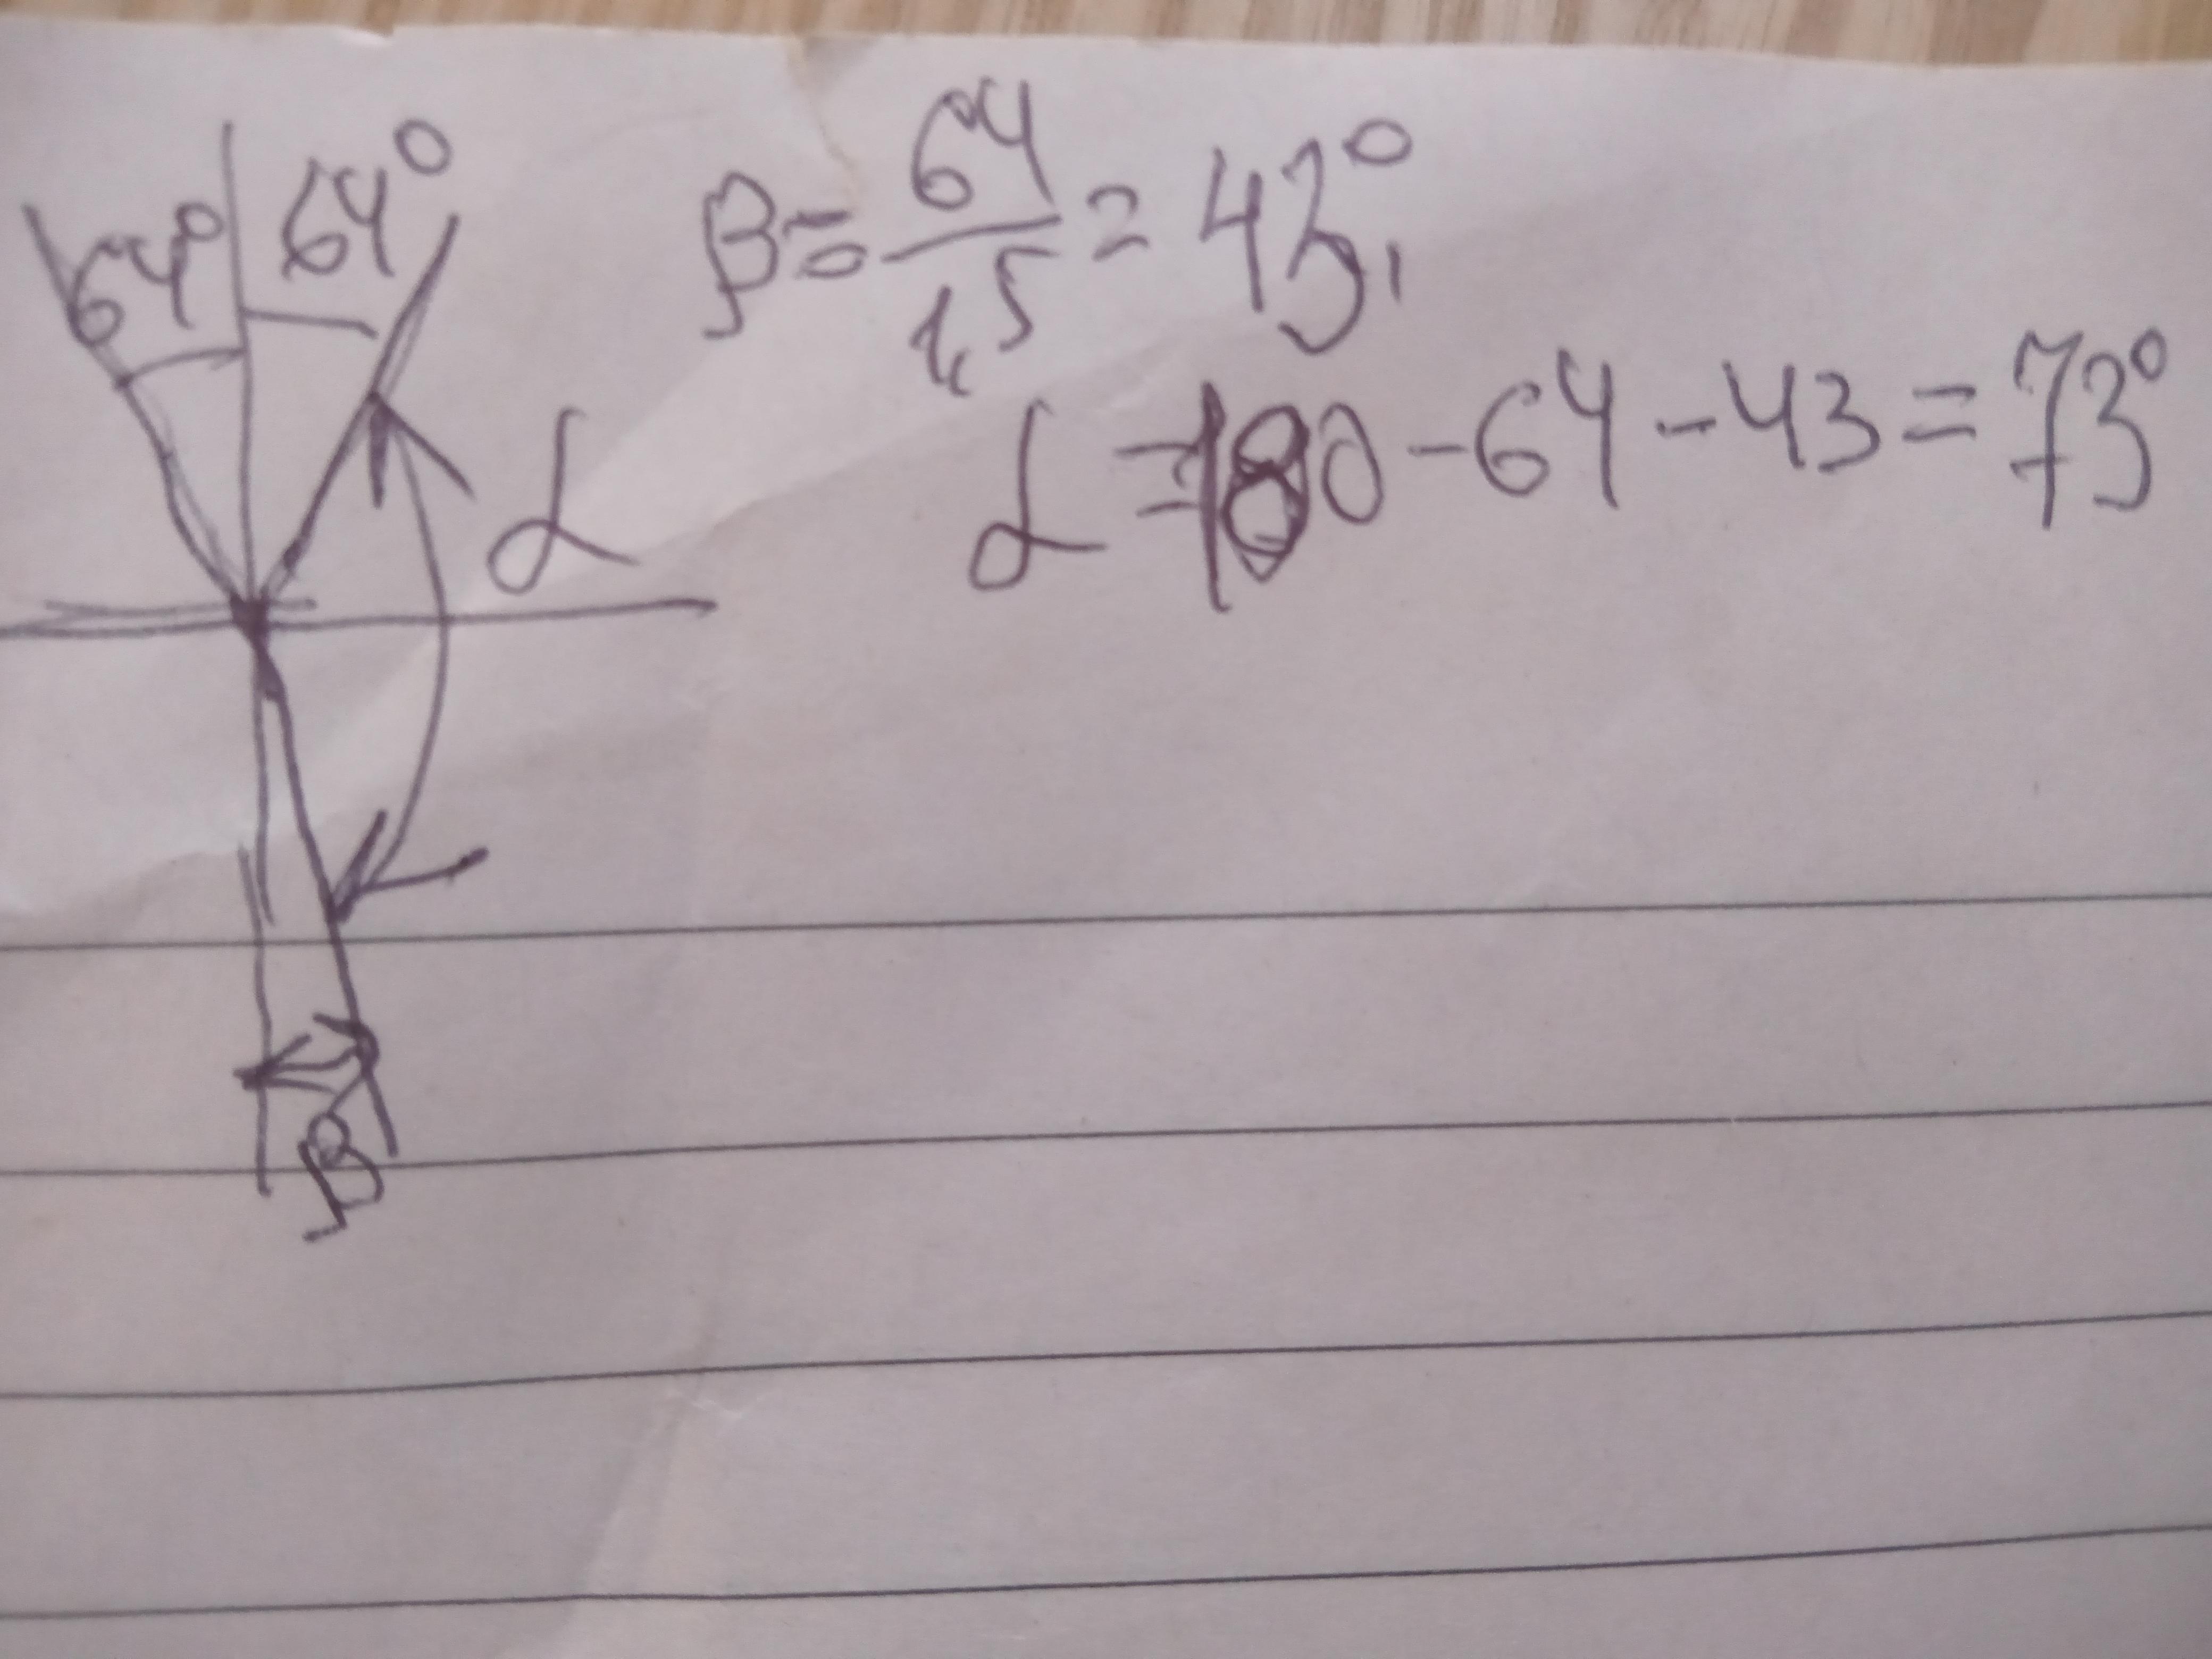 64° 64° β = 64/1,5 = 43°,
α α = 180 - 64 - 43 = 73°
β